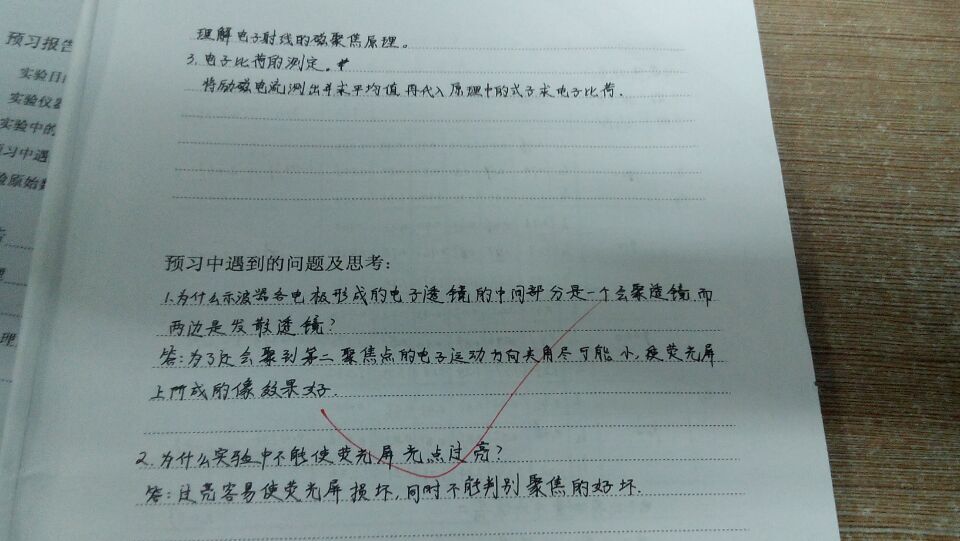 预习报告
实验目
实验仪器
实验中的
习中遇
验原始数
理
理解电子射线的磁聚焦原理。
3.电子比荷的测定。
将励磁电流测出并求平均值,再代入原理中的式子求电子比荷.
预习中遇到的问题及思考:
1.为什么示波器各电极形成的电子透镜的中间部分是一个会聚透镜而
两边是发散透镜?
答:为了使会聚到第二聚焦点的电子运动方向夹角尽可能小,使荧光屏
上所成的像效果好.
2.为什么实验中不能使荧光屏光点过亮?
答:过亮容易使荧光屏损坏,同时不能判别聚焦的好坏.